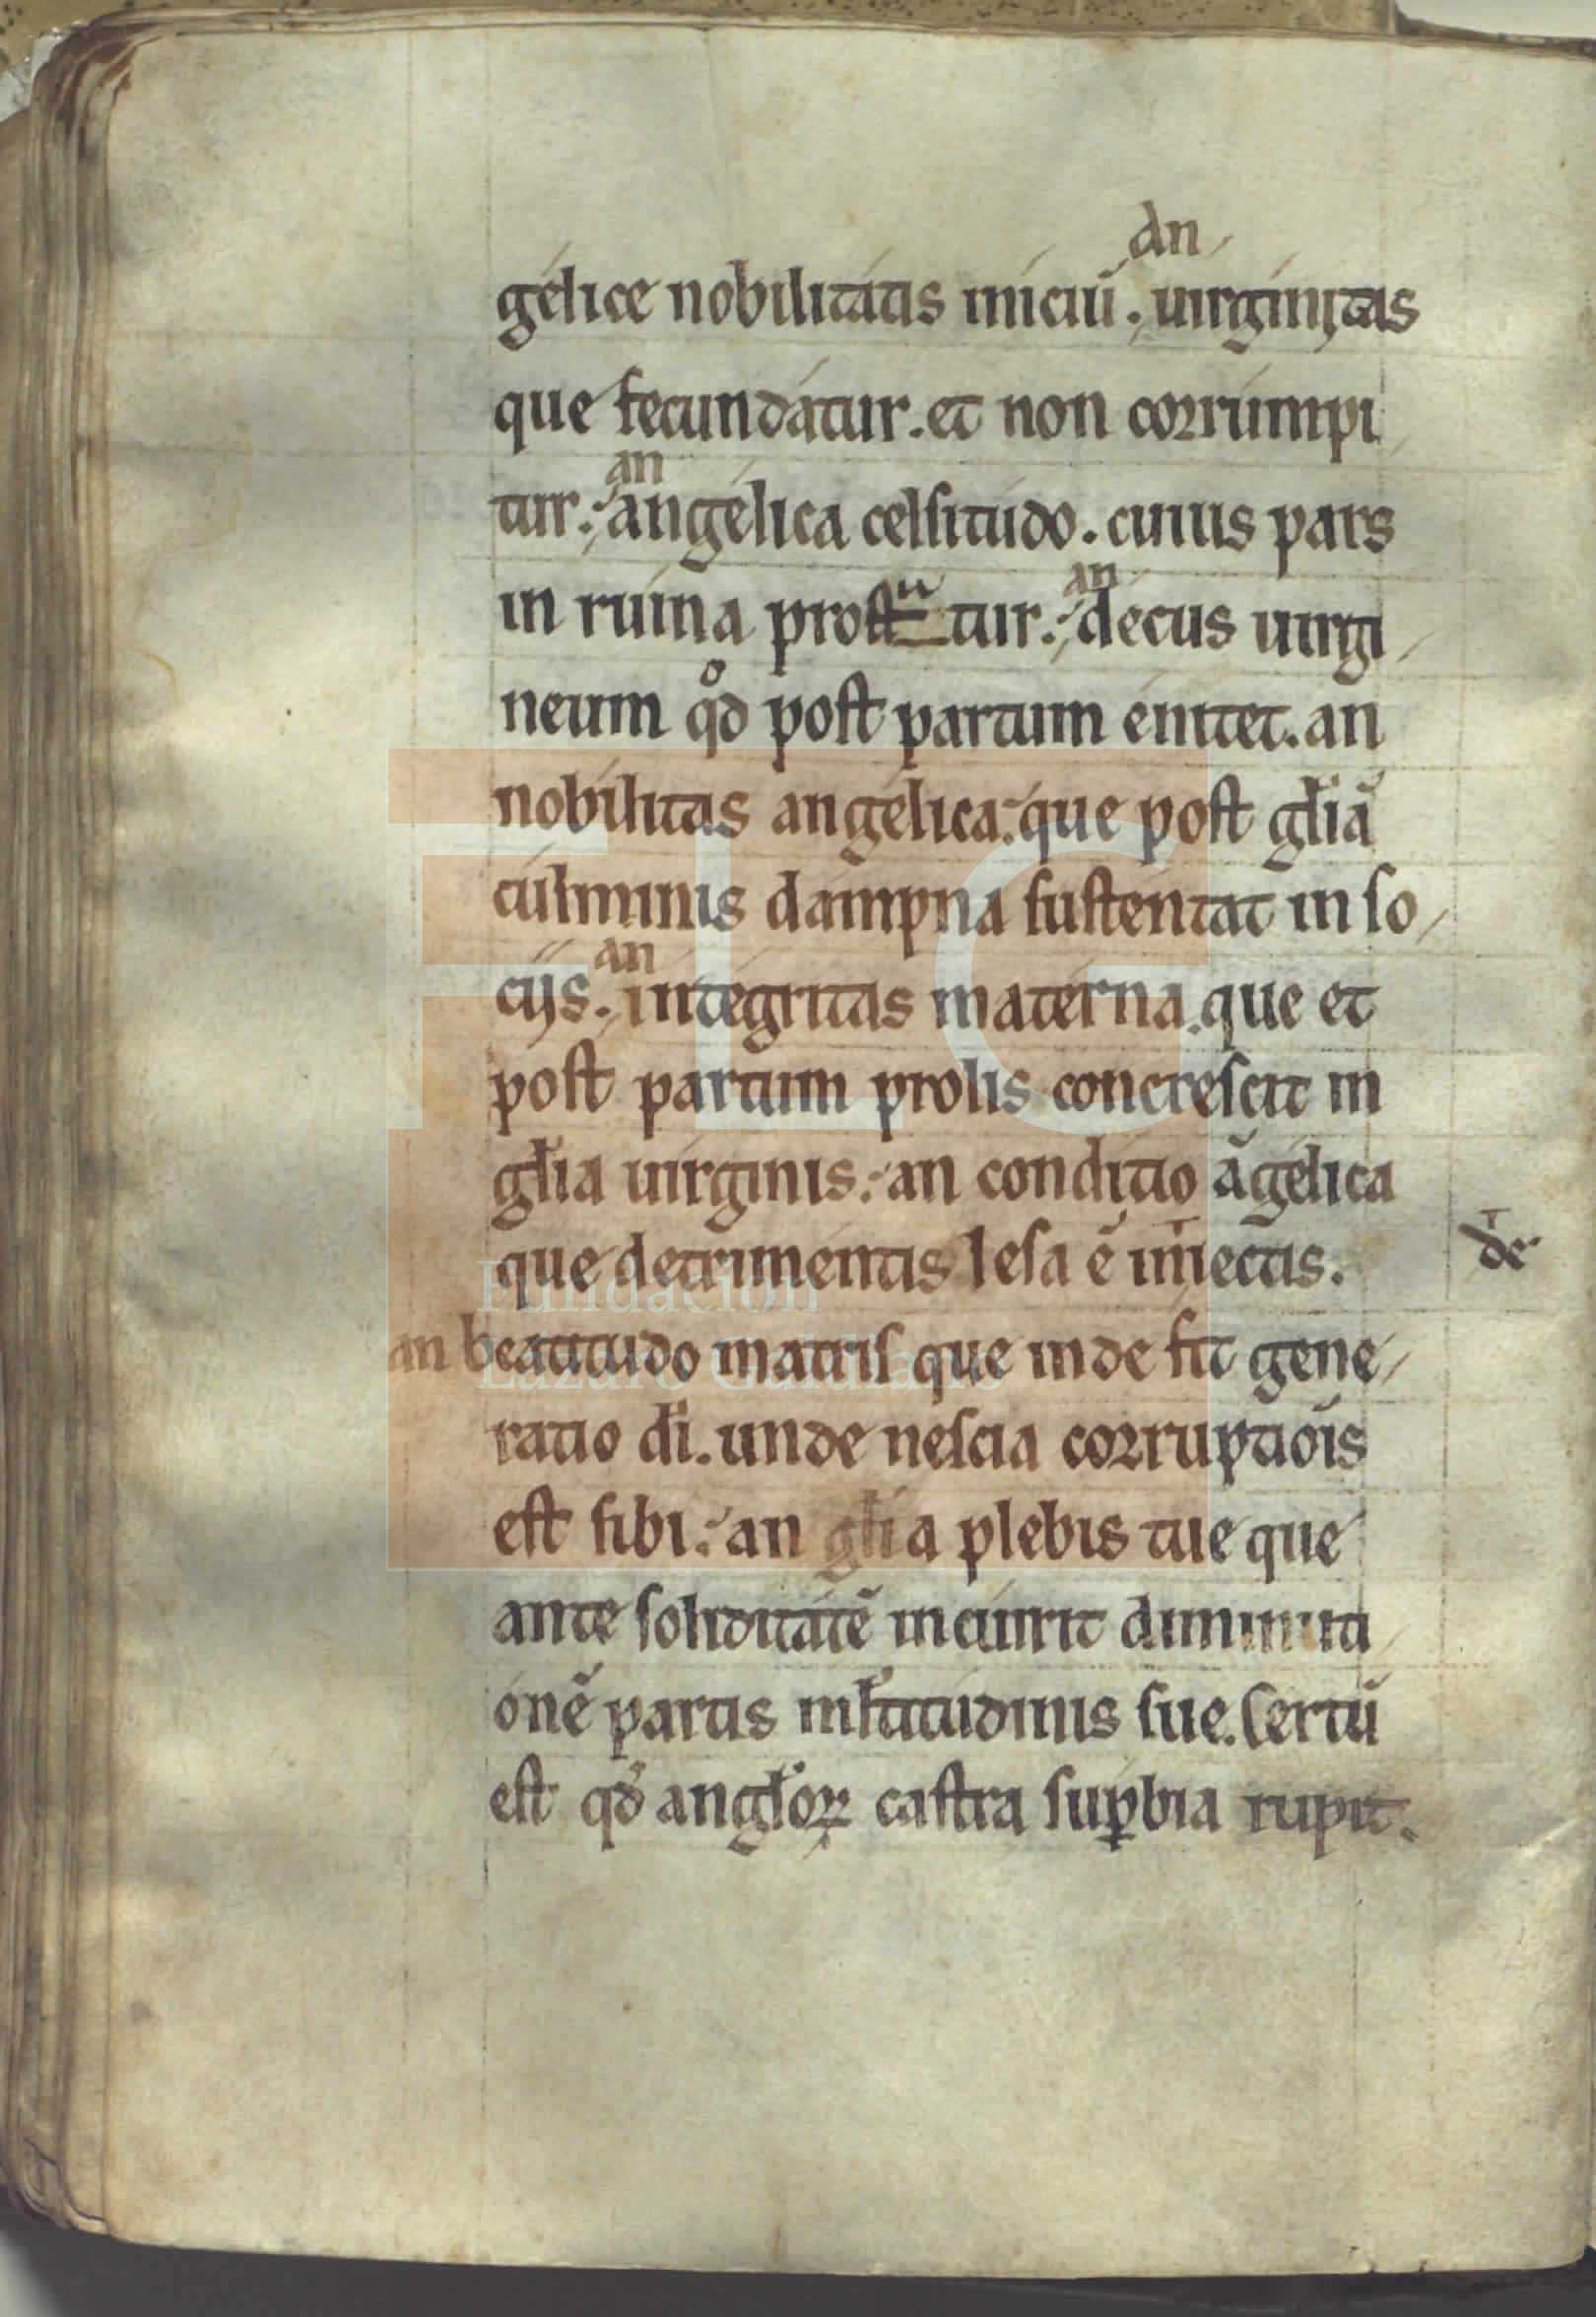 an
gelice nobilitatis iniciũ. uirginitas
que fecundatur. et non corrumpi
an
tur. angelica celsitudo. cuius pars
in ruina prost̄ tur. decus uirgi
an
neum qͦd post partum enitet. an
nobilitas angelica. que post gl̃iã
culminis dampna sustentat in so
an
cijs. integritas materna. que et
post partum prolis concrescit in
gl̃ia uirginis. an conditio ãgelica
que detrimentis lesa ẽ iniectis.
de
an beatitudo matris que inde fit gene
ratio di̅. unde nescia corruptiõis
est sibi. an gl̃ia plebis tue que
ante soliditatẽ incurrit diminuti
onẽ partis ml̃titudinis sue. Certũ
est qd̃ angl̃oꝝ castra suꝑbia rupit.
Fundación
Lázaro Galdiano
FLG